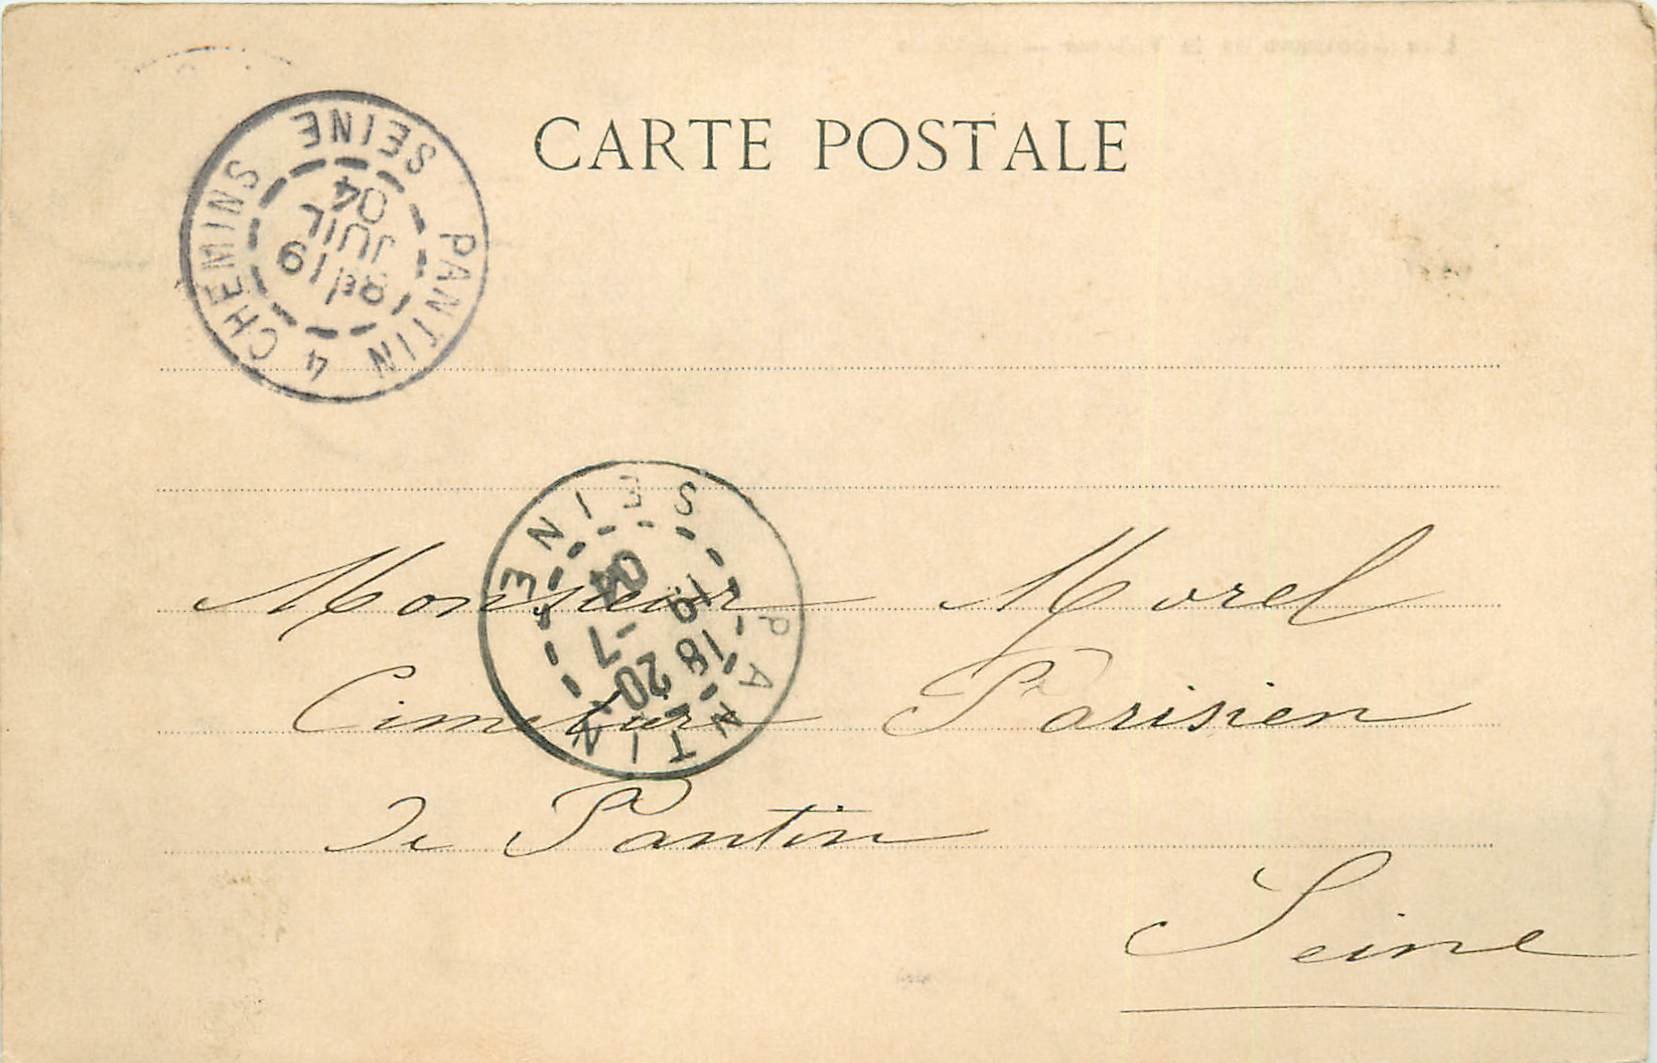 CARTE POSTALE
PANTIN 4 CHEMINS SEINE
19
JUIL
04
PANTIN SEINE
18 20
19 - 7
04
Monsieur Morel
Cimetière Parisien
de Pantin
Seine